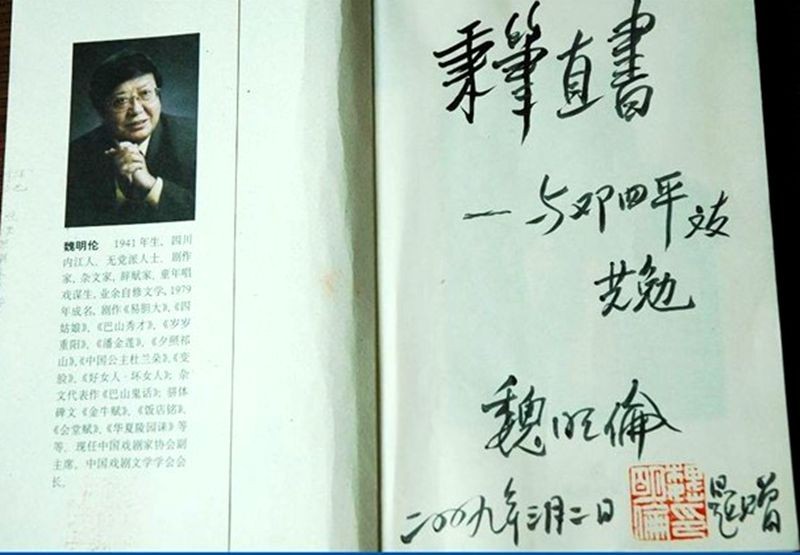 魏明伦 1941 年生，四川
内江人。无党派人士，剧作
家，杂文家，辞赋家，童年唱
戏谋生，业余自修文学，1979
年成名，剧作《易胆大》、《四
姑娘》、《巴山秀才》、《岁岁
重阳》、《潘金莲》、《夕照祁
山》、《中国公主杜兰朵》、《变
脸》、《好女人·坏女人》；杂
文代表作《巴山鬼话》；骈体
碑文《金牛赋》、《饭店铭》、
《会堂赋》、《华夏陵园诔》等
等。现任中国戏剧家协会副
主席，中国戏剧文学学会会
长。
秉筆直書
——与邓四平文友
共勉
魏明倫
二00九年三月二日 题赠